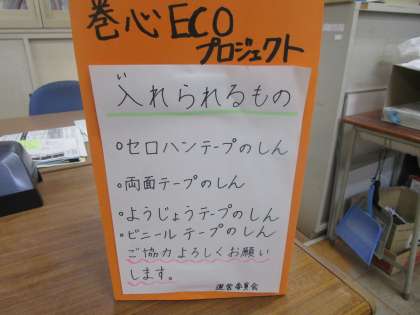 巻心ECO
プロジェクト
入れられるもの
い
○セロハンテープのしん
○両面テープのしん
○ようじょうテープのしん
・ビニールテープのしん
ご協力よろしくお願い
します。
運営委員会